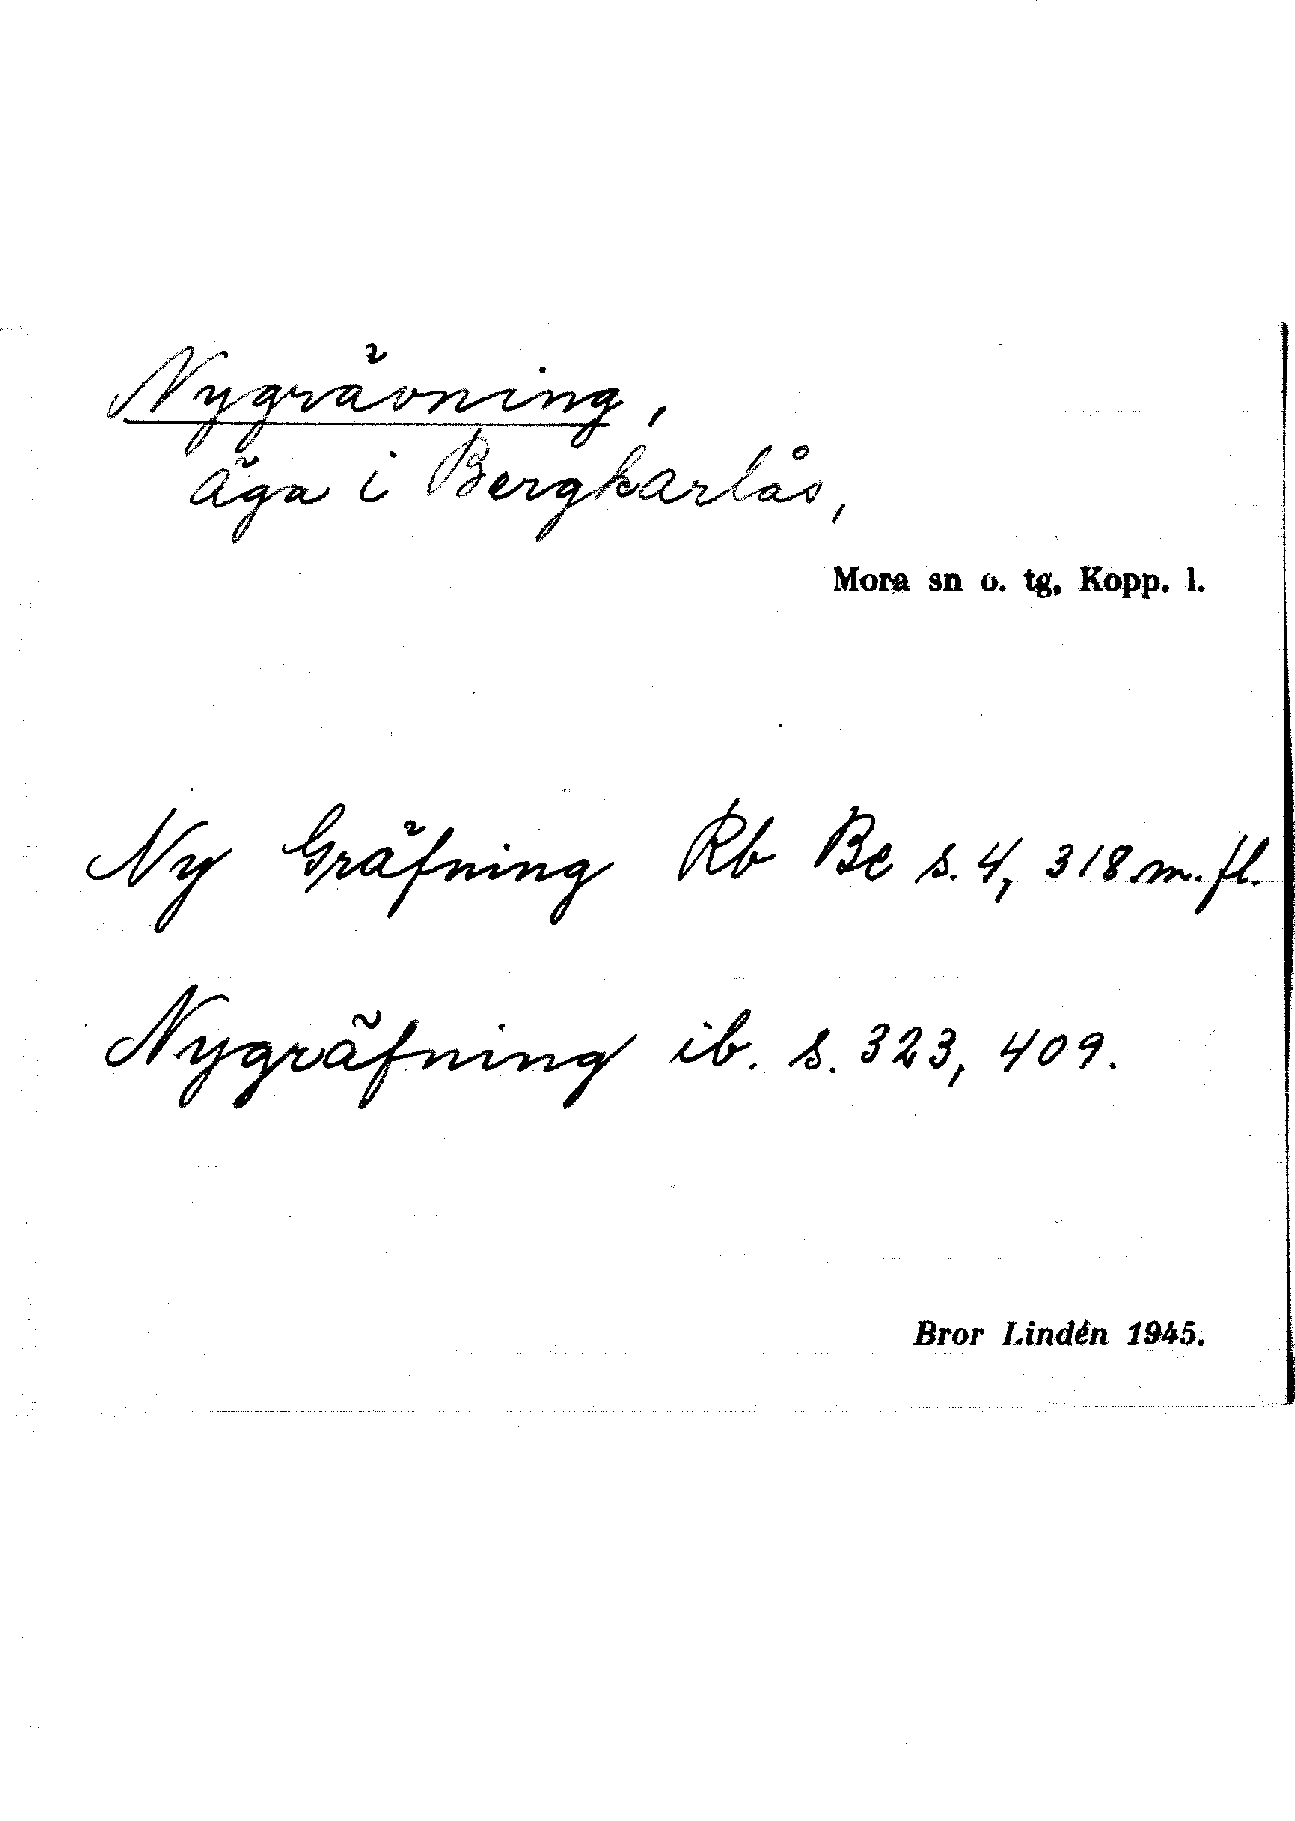 Nygrävning,
äga i Bergkarlås,
Mora sn o. tg, Kopp. l.
Ny Gräfning Rb Be s. 4, 318 m. fl.
Nygräfning ib. s. 323, 409.
Bror Lindén 1945.